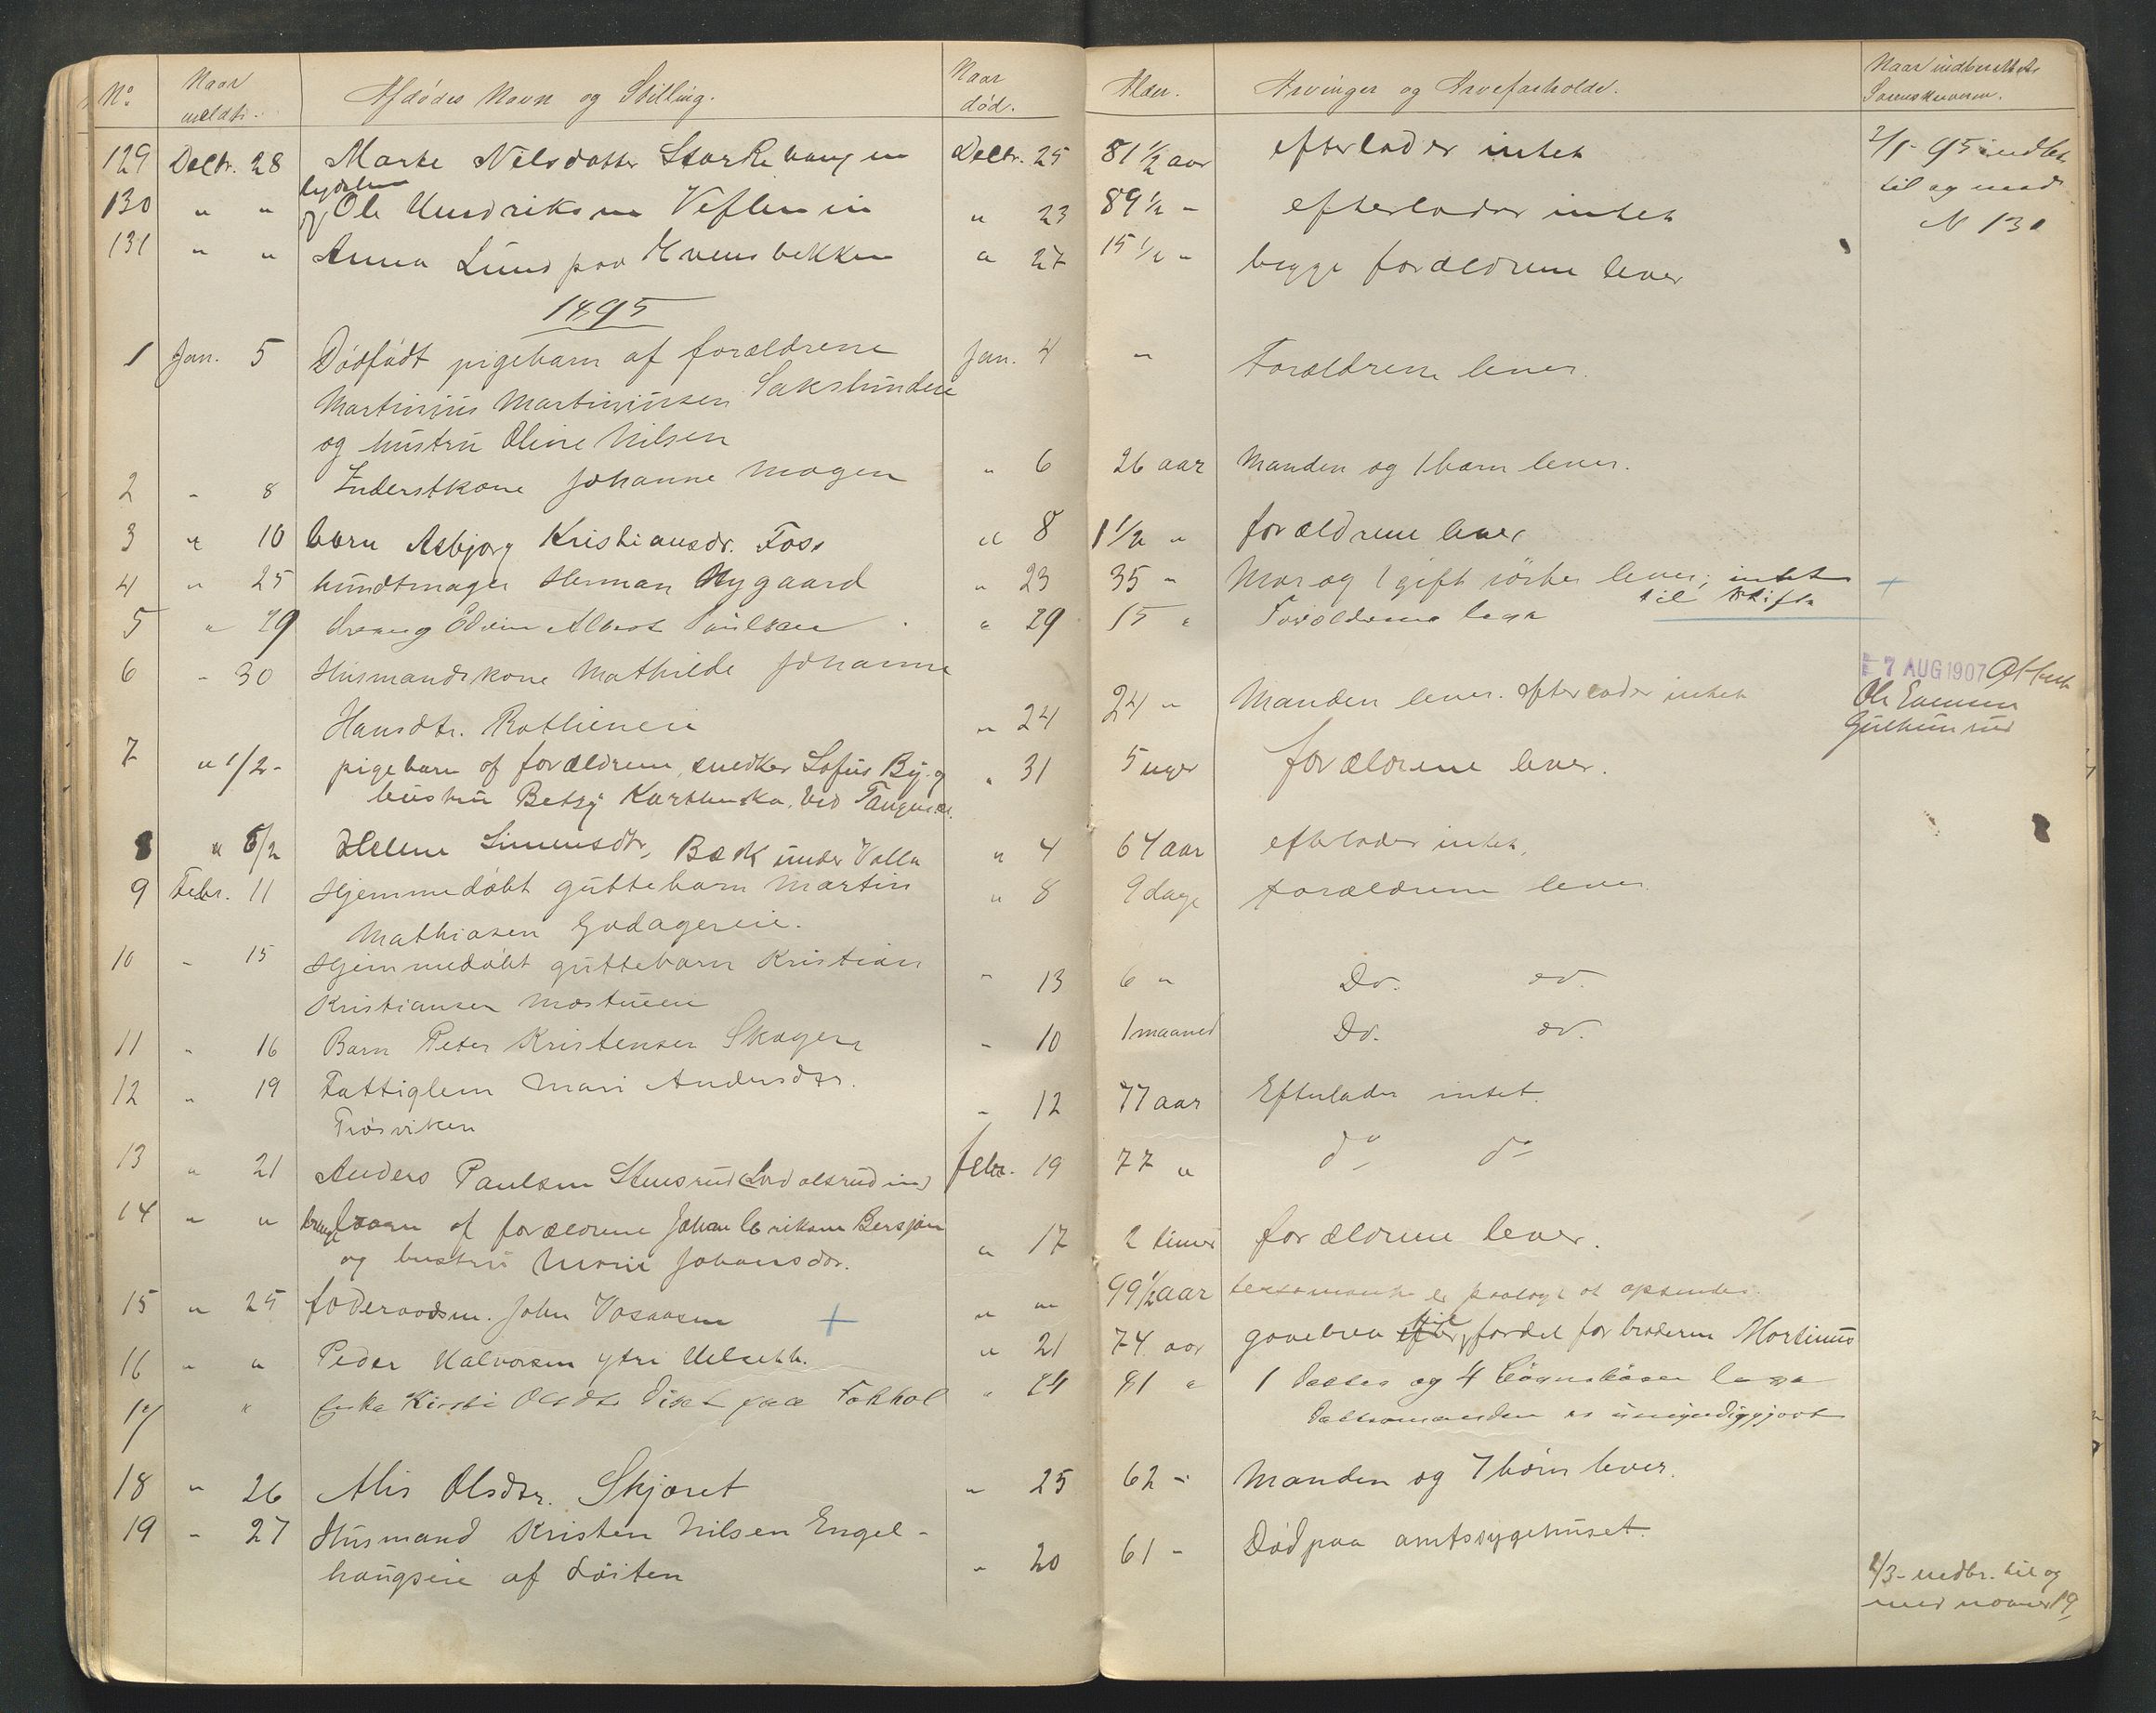 No. Naar meldt. Afdødes Navn og Stilling. Naar død. Alder. Arvinger og Arveforholde. Naar indberettet Sorenskriveren.
129 Decbr. 28 Marte Nilsdatter Starkehaugen Decbr. 25 81 1/2 aar efterlader intet 2/1 - 95 indbr.
til og med
130 " " Ole Hendriksen Veflenein " 23 89 1/2 - efterlader intet N 130
131 " " Anna Lund paa Evensbekken " 27 15 1/2 " begge forældrene lever
1895
1 Jan. 5 Dødfødt pigebarn af forældrene Jan. 4 " Forældrene lever.
Martinius Martiniusen Sakslundeie
og hustru Oline Nilsen
2 " 8 Inderstkone Johanne Mogen " 6 26 aar Manden og 1 barn lever.
3 " 10 barn Asbjørg Kristiansdr. Foss " 8 1 1/2 " forældrene lever
4 " 25 bundtmager Herman Nygaard " 23 35 " Mor og 1 gift søster lever; intet
til skifte
5 " 29 dreng Edvin Albert Paulsen " 29 15 " Forældrene leve
6 " 30 Husmandskone Mathilde Johanne
7 AUG 1907 Attest
Hansdtr. Rotlieneie " 24 24 " Manden lever. Efterlader intet Ole
7 " 1/2 - pigebarn af forældrene, snedker Lofus By og " 31 5 uger forældrene lever.
hustru Betsy ved
8 " 5/2 Helene Simensdtr, Bæk under Valle " 4 64 aar efterlader intet.
9 Febr. 11 Hjemmedøbt guttebarn Martin " 8 9 dage forældrene lever
Mathiasen Godagereie.
10 " 15 Hjemmedøbt guttebarn Kristian
" 13 6 " Do. do.
Kristiansen Mostueeie
11 " 16 Barn Peter Kristensen Skogen " 10 1 maaned Do. do.
12 " 19 Fattiglem Mari Andersdtr. " 12 77 aar Efterlader intet.
Tiosviken
13 " 21 Anders Paulsen Stensrud febr. 19 77 " do do
14 " " barn af forældrene Johan Eriksen Bersjøn
og hustru Marie Johansdr. " 17 2 timer forældrene lever.
15 " 25 foderaadsm. John Vosaasen " " 99 1/2 aar testamente er paalagt at opsendes.
16 " " Peder Halvorsen ytre " 21 74 aar gavebrev til fordel for broderen Martinus
17 " Enke Kirsti Olsdtr paa Fokhol " 24 81 " 1 Datter og 4 leve
er umyndiggjort
18 " 26 Alis Olsdtr. Skjæret " 25 62 - Manden og 7 børn lever.
19 - 27 Husmand Kristen Nilsen Engel- Død paa amtssygehuset.
haugseie af Løiten " 20 61 -
2/3 - indbr. til og
med nomer 19.